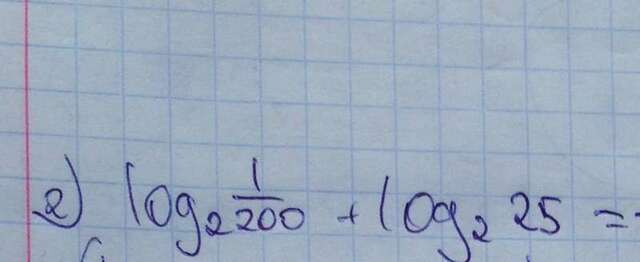 г) log₂ 1/200 + log₂ 25 =